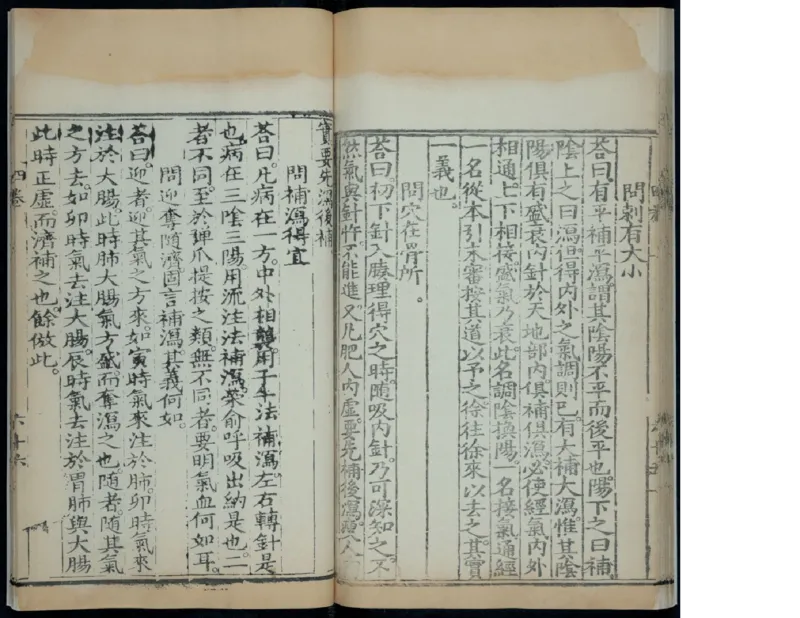 問刺有大小
荅曰有平補平瀉謂其陰陽不平而後平也陽下之曰補
陰上之曰瀉但得內外之氣調則已有大補大瀉惟其陰
陽俱有盛衰內針於天地部內俱補俱瀉必使經氣內外
相通上下相接盛氣乃衰此名調陰換陽一名接氣通經
一名從本引末審按其道以予之徐徃徐來以去之其實
一義也
問穴在骨所
荅曰初下針入腠理得穴之時隨吸內針乃可深知之不
然氣與針忤不能進又凡肥人內虛要先補後瀉瘦人
實要先瀉後補
問補瀉得宜
荅曰凡病在一方中外相襲用子午法補瀉左右轉針是
也病在三陰三陽用流注法補瀉榮俞呼吸出納是也二
者不同至於彈爪提按之類無不同者要明氣血何如耳
問迎奪隨濟固言補瀉其義何如
荅曰迎者迎其氣之方來如寅時氣來注於肺卯時氣來
注於大腸此時肺大腸氣方盛而奪瀉之也隨者隨其氣
之方去如卯時氣去注大腸辰時氣去注於胃肺與大腸
此時正虛而濟補之也餘倣此
四卷
六十六